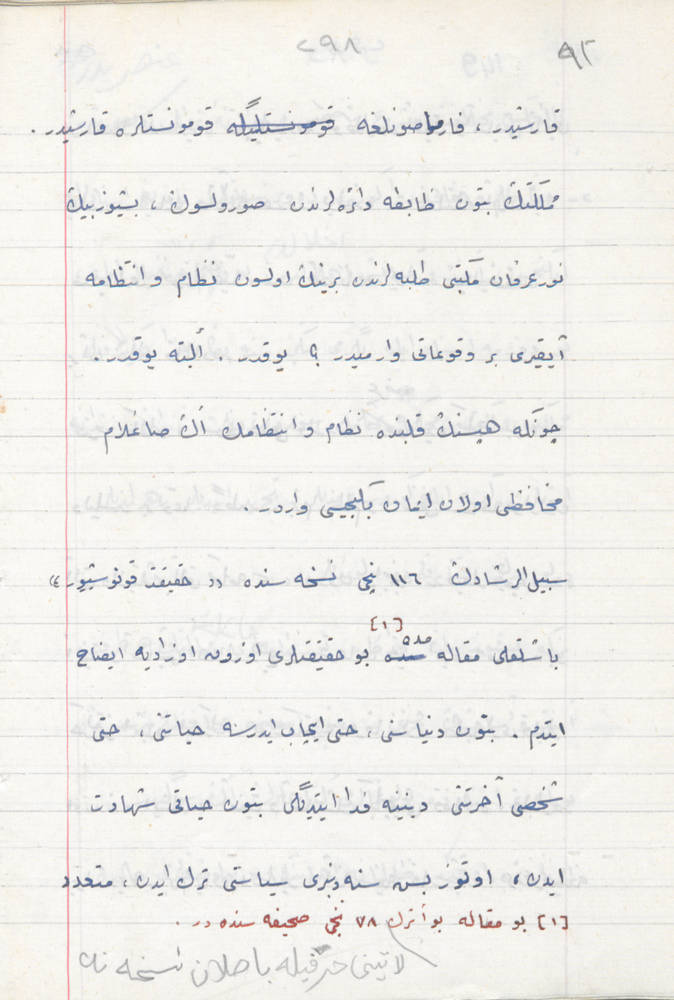 ٢٩٨ ٩٢
قارشیدر، فارماصونلغه قومونستلیگله قومونستلره قارشیدر.
مملكتك بتون ضابطه دائره لرندن صورولسون، بشیوزبیڭ
نور عرفان مكتبی طلبه لرندن برینك اولسون نظام و انتظامه
آیقیری بر وقوعاتی وارمیدر؟ یوقدر. ألبته یوقدر.
چونكه هپسنك قلبنده نظام و انتظامك أڭ صاغلام
محافظی اولان ایمان بكجیسی واردر.
سبیل الرشادك ١١٦ نجی نسخه سنده «حقیقت قونوشیور»
[١]
باشلقلی مقاله مده بو حقیقتلری اوزون اوزادیه ایضاح
ایتدم. بتون دنیاسنی، حتی ایجاب ایدرسه حیاتنی، حتی
شخصی آخرتنی دیننه فدا ایتدیگنی بتون حیاتی شهادت
ایدن، اوتوز بش سنه دنبری سیاستی ترك ایدن، متعدد
[١] بو مقاله بو أثرك ٧٨ نجی صحیفه سنده در.
لاتینی حرفیله باصلان نسخه نك